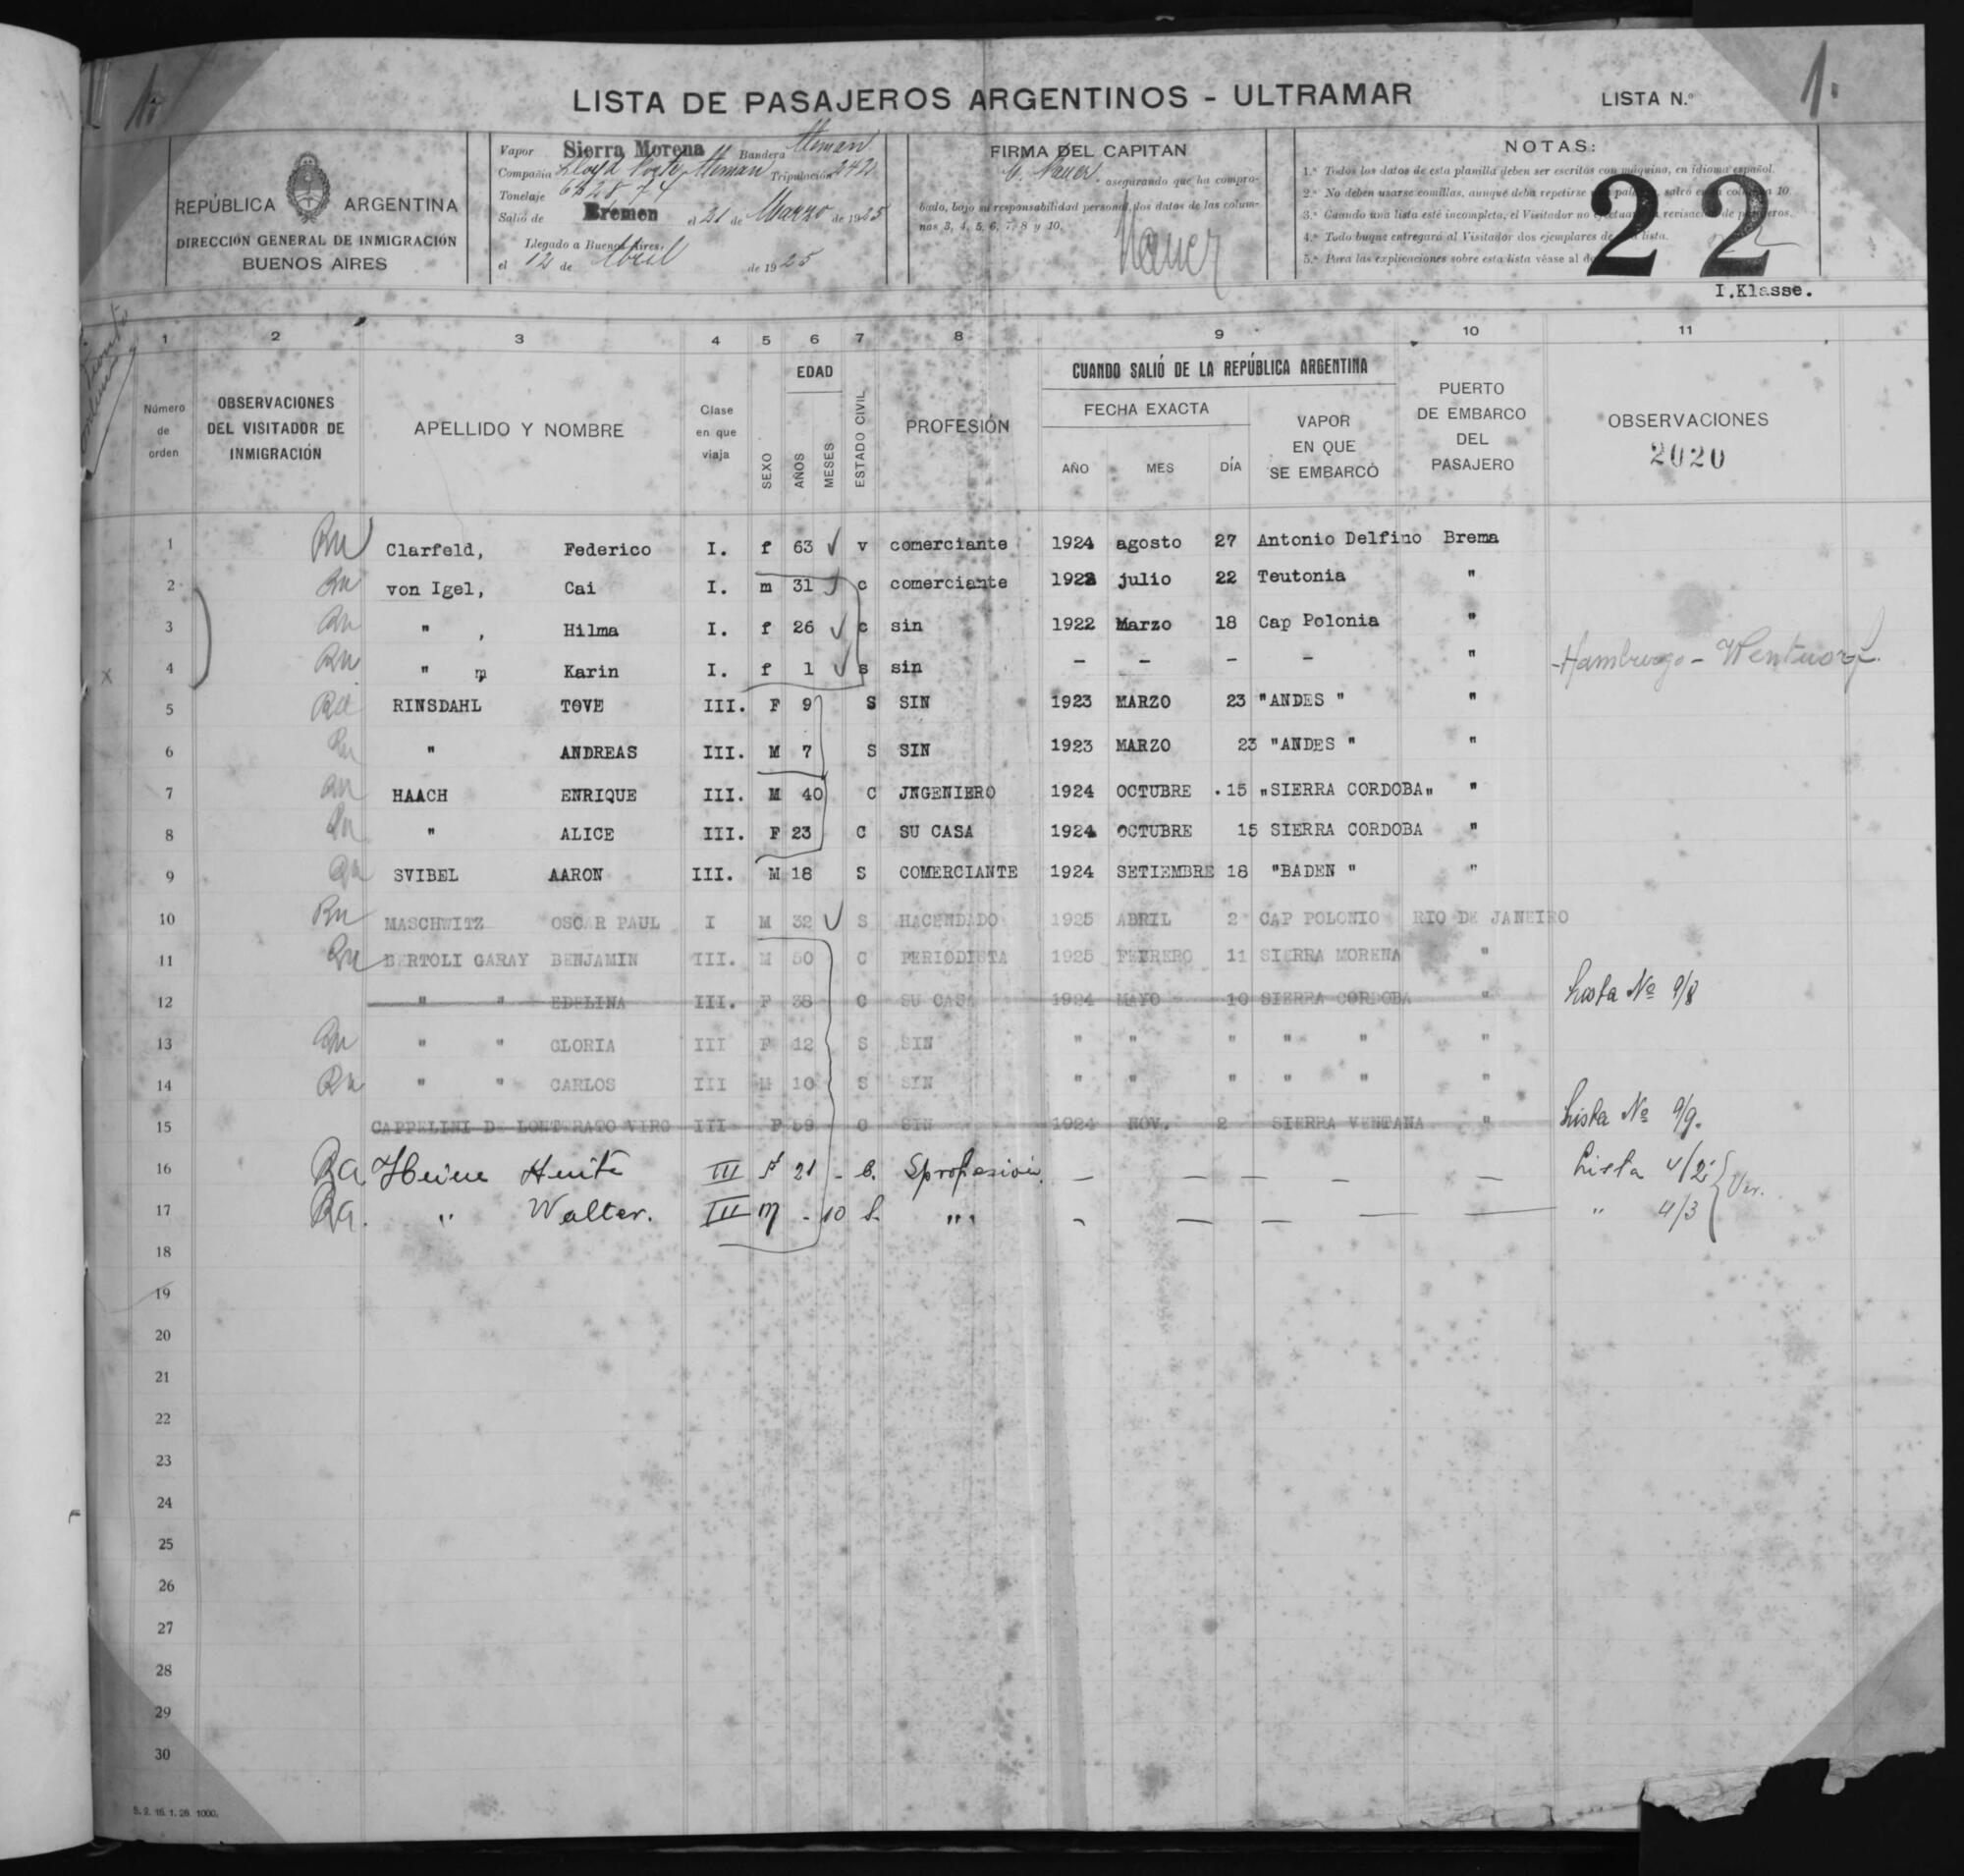 1.
LISTA DE PASAJEROS ARGENTINOS - ULTRAMAR
LISTA N.º 1.
REPÚBLICA ARGENTINA
DIRECCIÓN GENERAL DE INMIGRACIÓN
BUENOS AIRES
Vapor Sierra Morena Bandera Aleman
Compañia Lloyd Norte Aleman Tripulación 242
Tonelaje
Salió de Bremen el 21 de Marzo de 1925
Llegado a Buenos Aires,
el 12 de Abril de 1925
FIRMA DEL CAPITAN
asegurando que ha compro-
bado, bajo su responsabilidad personal, los datos de las colum-
nas 3, 4, 5, 6, 7, 8 y 10.
NOTAS:
1.ª Todos los datos de esta planilla deben ser escritos con máquina, en idioma español.
2.ª No deben usarse comillas, aunque deba repetirse salvo en 10.
3.ª Cuando una lista esté incompleta, el Visitador no revisación de
4.ª Todo buque entregará al Visitador dos ejemplares de lista.
5.ª Para las explicaciones sobre esta lista véase al
22
I.Klasse.
1 2 3 4 5 6 7 8 9 10 11
Número de orden
OBSERVACIONES DEL VISITADOR DE INMIGRACIÓN
APELLIDO Y NOMBRE
Clase en que viaja
SEXO
EDAD
AÑOS
MESES
ESTADO CIVIL
PROFESIÓN
CUANDO SALIÓ DE LA REPÚBLICA ARGENTINA
FECHA EXACTA
AÑO MES DÍA
VAPOR EN QUE SE EMBARCÓ
PUERTO DE EMBARCO DEL PASAJERO
OBSERVACIONES
2020
1 Clarfeld, Federico I. f 63 v comerciante 1924 agosto 27 Antonio Delfino Brema
2 von Igel, Cai I. m 31 c comerciante 1922 julio 22 Teutonia "
3 " , Hilma I. f 26 c sin 1922 Marzo 18 Cap Polonia "
4 " , Karin I. f 1 s sin - - - - " Hamburgo -
5 RINSDAHL TOVE III. F 9 S SIN 1923 MARZO 23 "ANDES " "
6 " ANDREAS III. M 7 S SIN 1923 MARZO 23 "ANDES " "
7 HAACH ENRIQUE III. M 40 C JNGENIERO 1924 OCTUBRE .15 "SIERRA CORDOBA" "
8 " ALICE III. F 23 C SU CASA 1924 OCTUBRE 15 SIERRA CORDOBA "
9 SVIBEL AARON III. M 18 S COMERCIANTE 1924 SETIEMBRE 18 "BADEN " "
10 MASCHWITZ OSCAR PAUL I M 32 S HACENDADO 1925 ABRIL 2 CAP POLONIO RIO DE JANEIRO
11 BERTOLI GARAY BENJAMIN III. M 50 C PERIODISTA 1925 FEBRERO 11 SIERRA MORENA "
12 " " EDELINA III. F 38 C SU CASA 1924 MAYO 10 SIERRA CORDOBA " Lista Nº 9/8
13 " " GLORIA III F 12 S SIN " " " " " "
14 " " CARLOS III M 10 S SIN " " " " " "
15 CAPPELINI DE VIRG III F 59 C SIN 1924 NOV. 2 SIERRA VENTANA " Lista Nº 9/9.
16 III f 21 - S profesión - - - - - Lista 4/2 Ver.
17 " Walter. III m - 10 S. " " - - - - - " 4/3
18
19
20
21
22
23
24
25
26
27
28
29
30